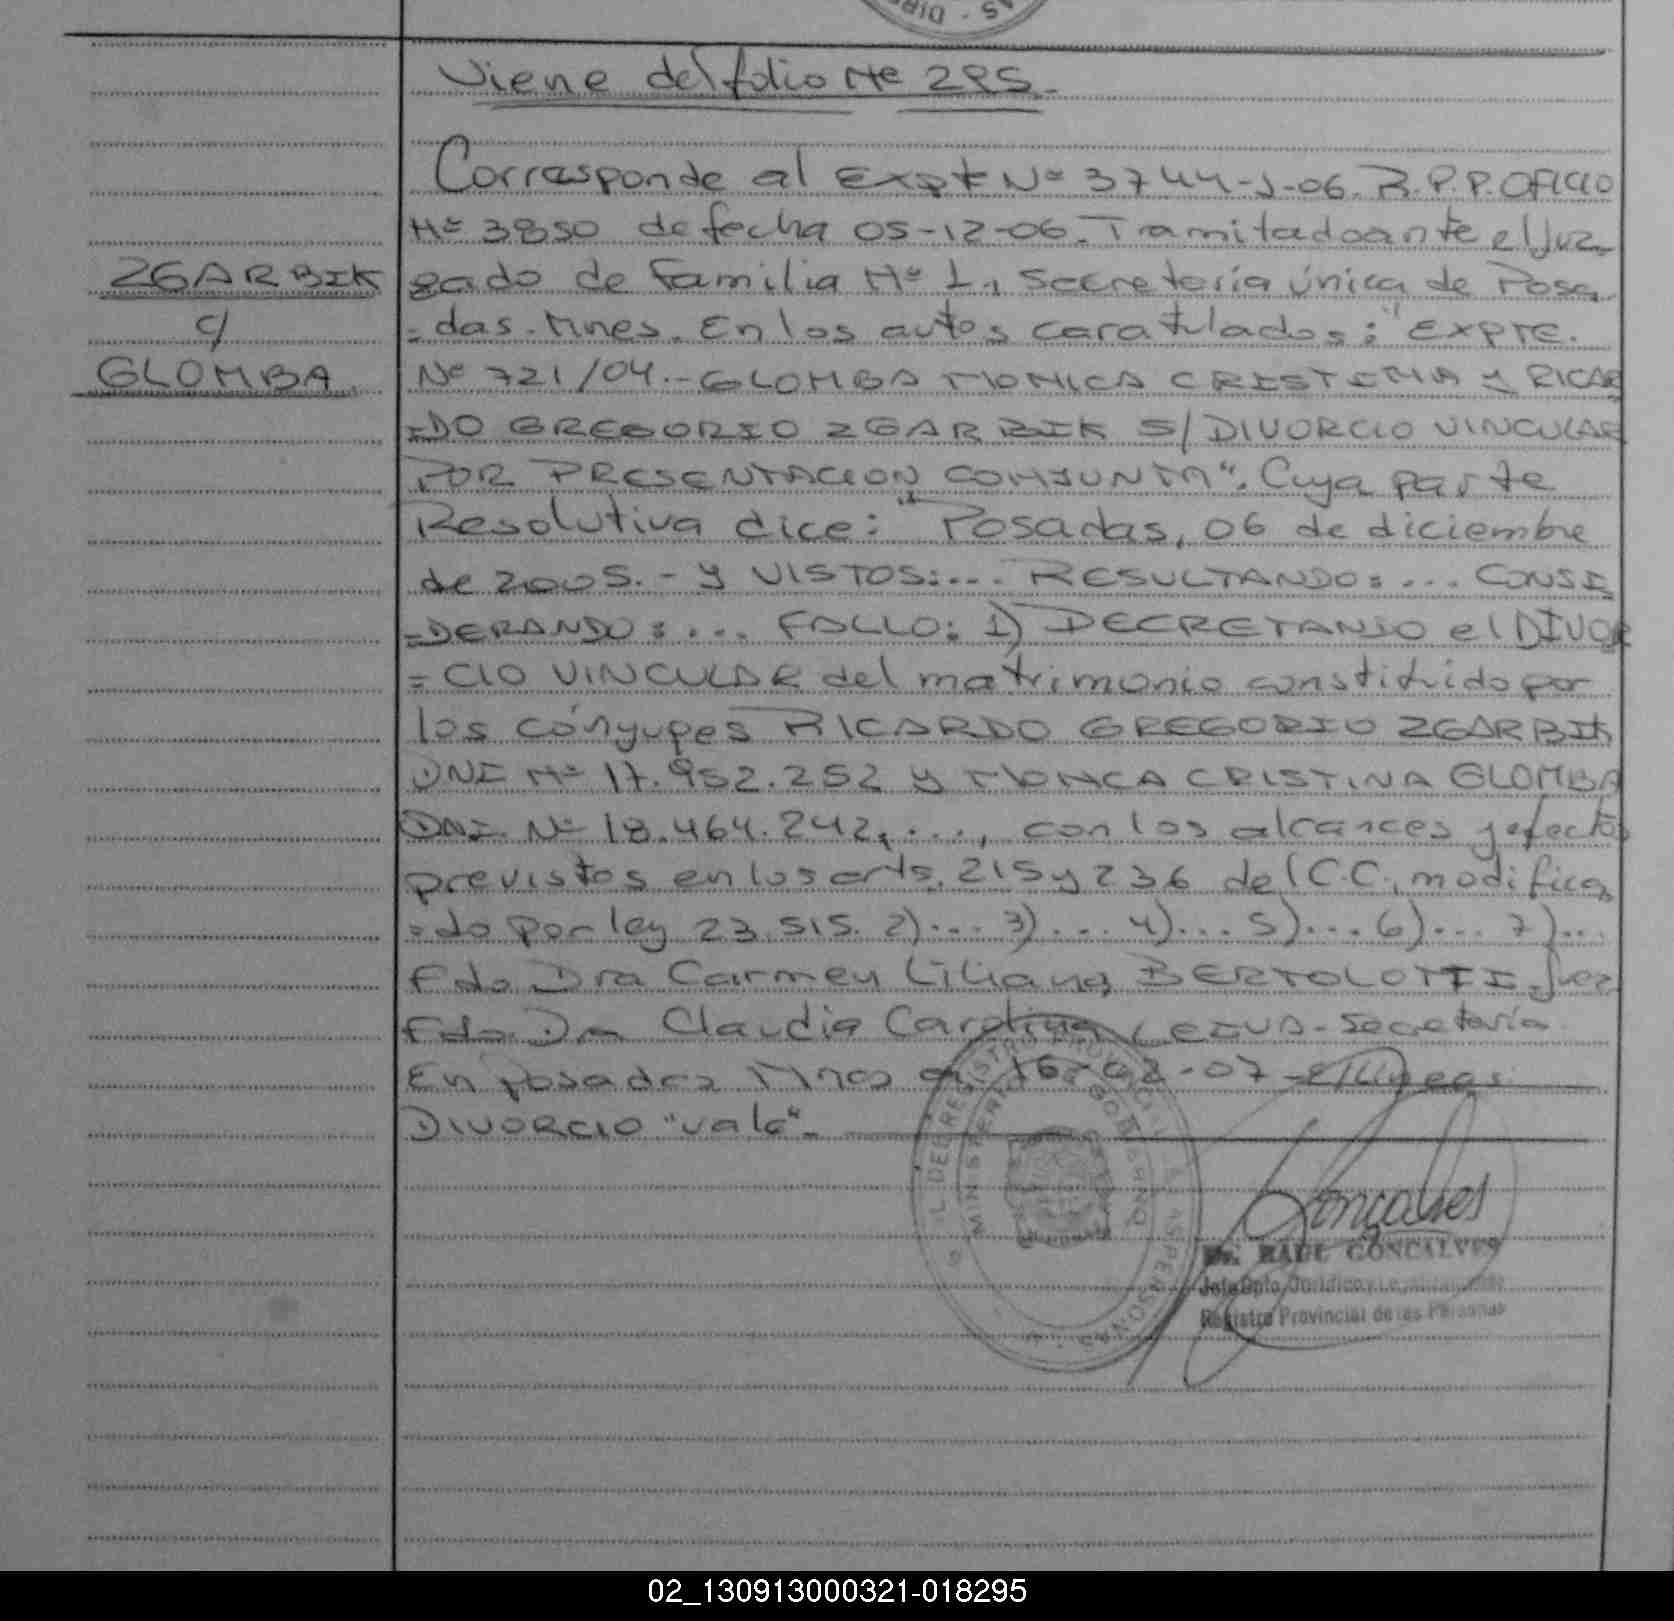 Viene del folio Nº 295.
Corresponde al Expte Nº 3744-J-06. R.P.P. OFICIO
Nº 3850 de fecha 05-12-06. Tramitado ante el Juz
ZGARBIK
c/
GLOMBA
gado de Familia Nº 1, Secretaría única de Posa
=das. Mnes. En los autos caratulados: "EXPTE.
Nº 721/04.- GLOMBA MONICA CRISTINA y RICAR
=DO GREGORIO ZGARBIK S/ DIVORCIO VINCULAR
POR PRESENTACION CONJUNTA". Cuya parte
Resolutiva dice: "Posadas, 06 de diciembre
de 2005.- y VISTOS:... RESULTANDO:... CONSI
=DERANDO:... FALLO: 1) DECRETANDO el DIVOR
=CIO VINCULAR del matrimonio constituido por
los cónyuges RICARDO GREGORIO ZGARBIK
DNI Nº 17.952.252 y MONICA CRISTINA GLOMBA
DNI. Nº 18.464.242,...., con los alcances y efectos
previstos en los arts. 215 y 236 del C.C., modifica
=do por ley 23.515. 2)... 3)... 4)... 5)... 6)... 7)...
Fdo Dra Carmen Liliana BERTOLOTTI. Juez
Fdo. Dra Claudia Carolina Secretaria
En posadas Mnes a 16-02-07-
DIVORCIO "vale".
Gonçalves
Dr. RAUL GONCALVES
Jefe Dpto. Jurídico y
Registro Provincial de las Personas
MINISTERIO GOBIERNO
DIR
02_130913000321-018295